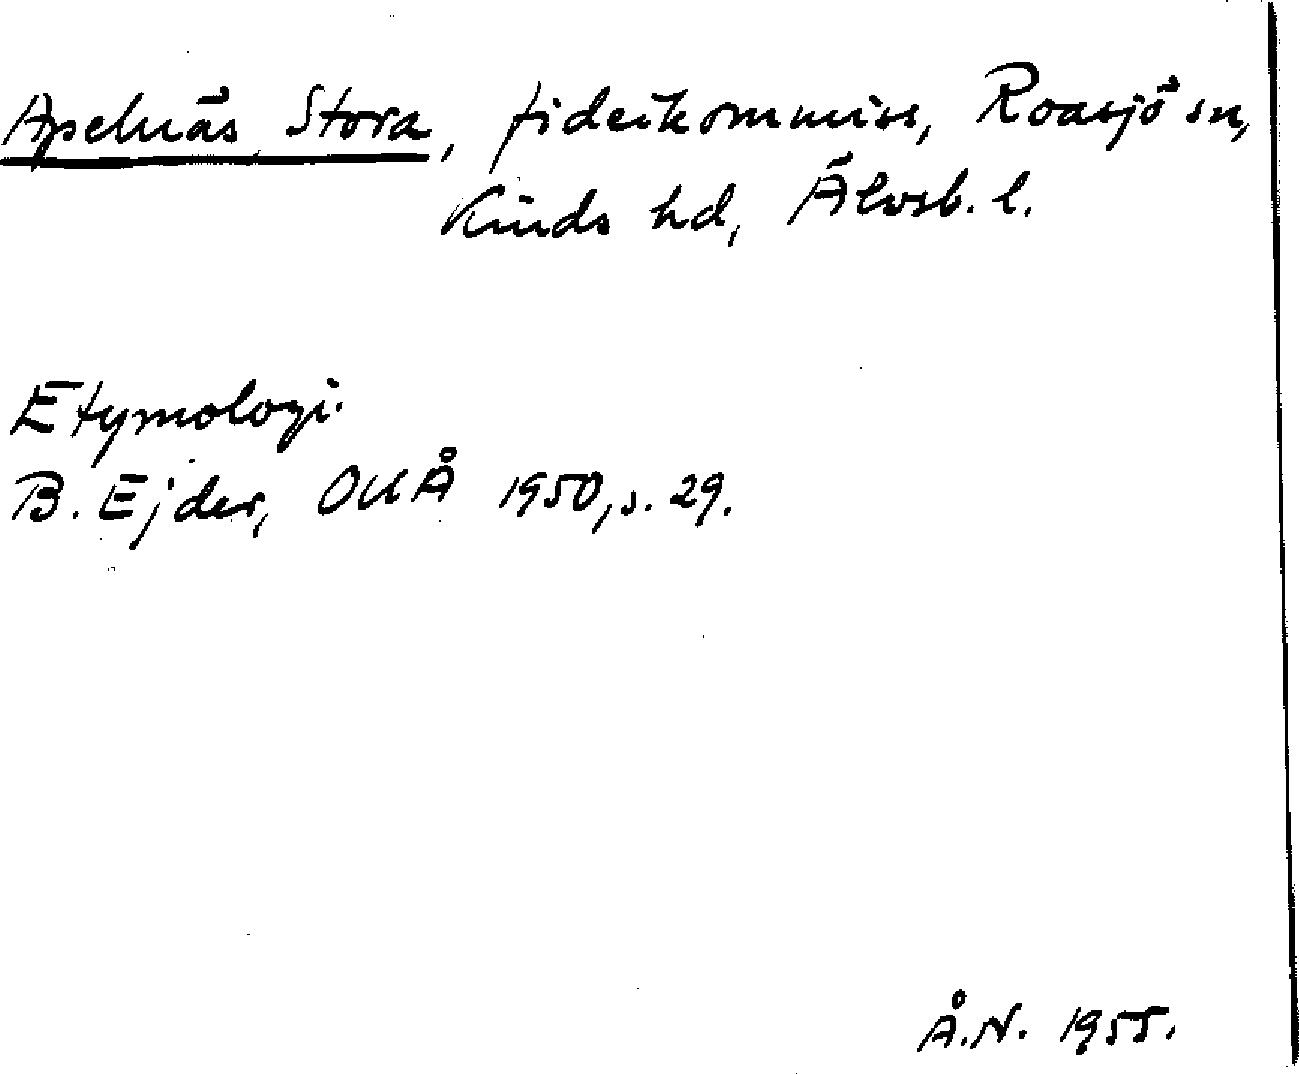 Apelnäs, Stora, fideikommiss, Roasjö sn,
Kinds hd, Älvsb. l.
Etymologi.
B. Ejder, OUÅ 1950, s. 29.
Å.N. 1955.